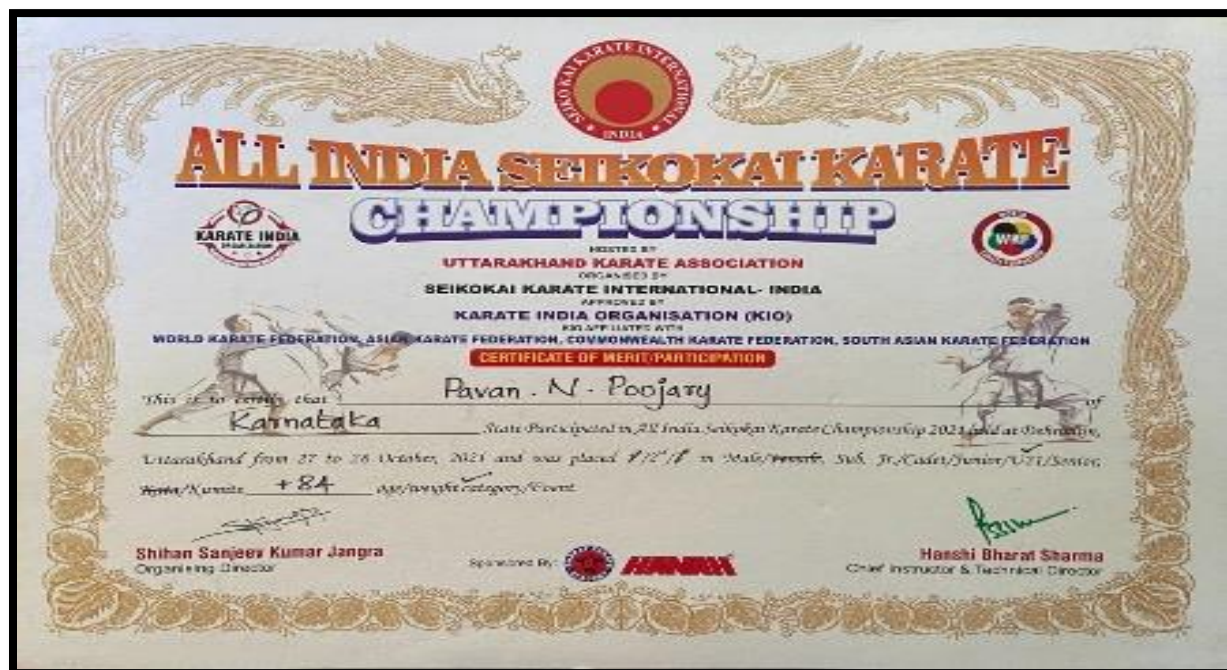 SEIKO KAI KARATE INTERNATIONAL
INDIA
ALL INDIA SEIKOKAI KARATE
CHAMPIONSHIP
KARATE INDIA
WKF
HOSTED BY
UTTARAKHAND KARATE ASSOCIATION
ORGANISED BY
SEIKOKAI KARATE INTERNATIONAL- INDIA
APPROVED BY
KARATE INDIA ORGANISATION (KIO)
KIO AFFILIATED WITH
WORLD KARATE FEDERATION, ASIAN KARATE FEDERATION, COMMONWEALTH KARATE FEDERATION, SOUTH ASIAN KARATE FEDERATION
CERTIFICATE OF MERIT/PARTICIPATION
This is to certify that Pavan . N . Poojary of
Karnataka State Participated in All India Seikokai Karate Championship 2021 held at Dehradun,
Uttarakhand from 27 to 28 October, 2021 and was placed in Male/Female, Sub. Jr./Cadet/Junior/U21/Senior,
Kata/Kumite +84 age/weight category/Event
Shihan Sanjeev Kumar Jangra
Organising Director
Sponsored By:
Hanshi Bharat Sharma
Chief Instructor & Technical Director